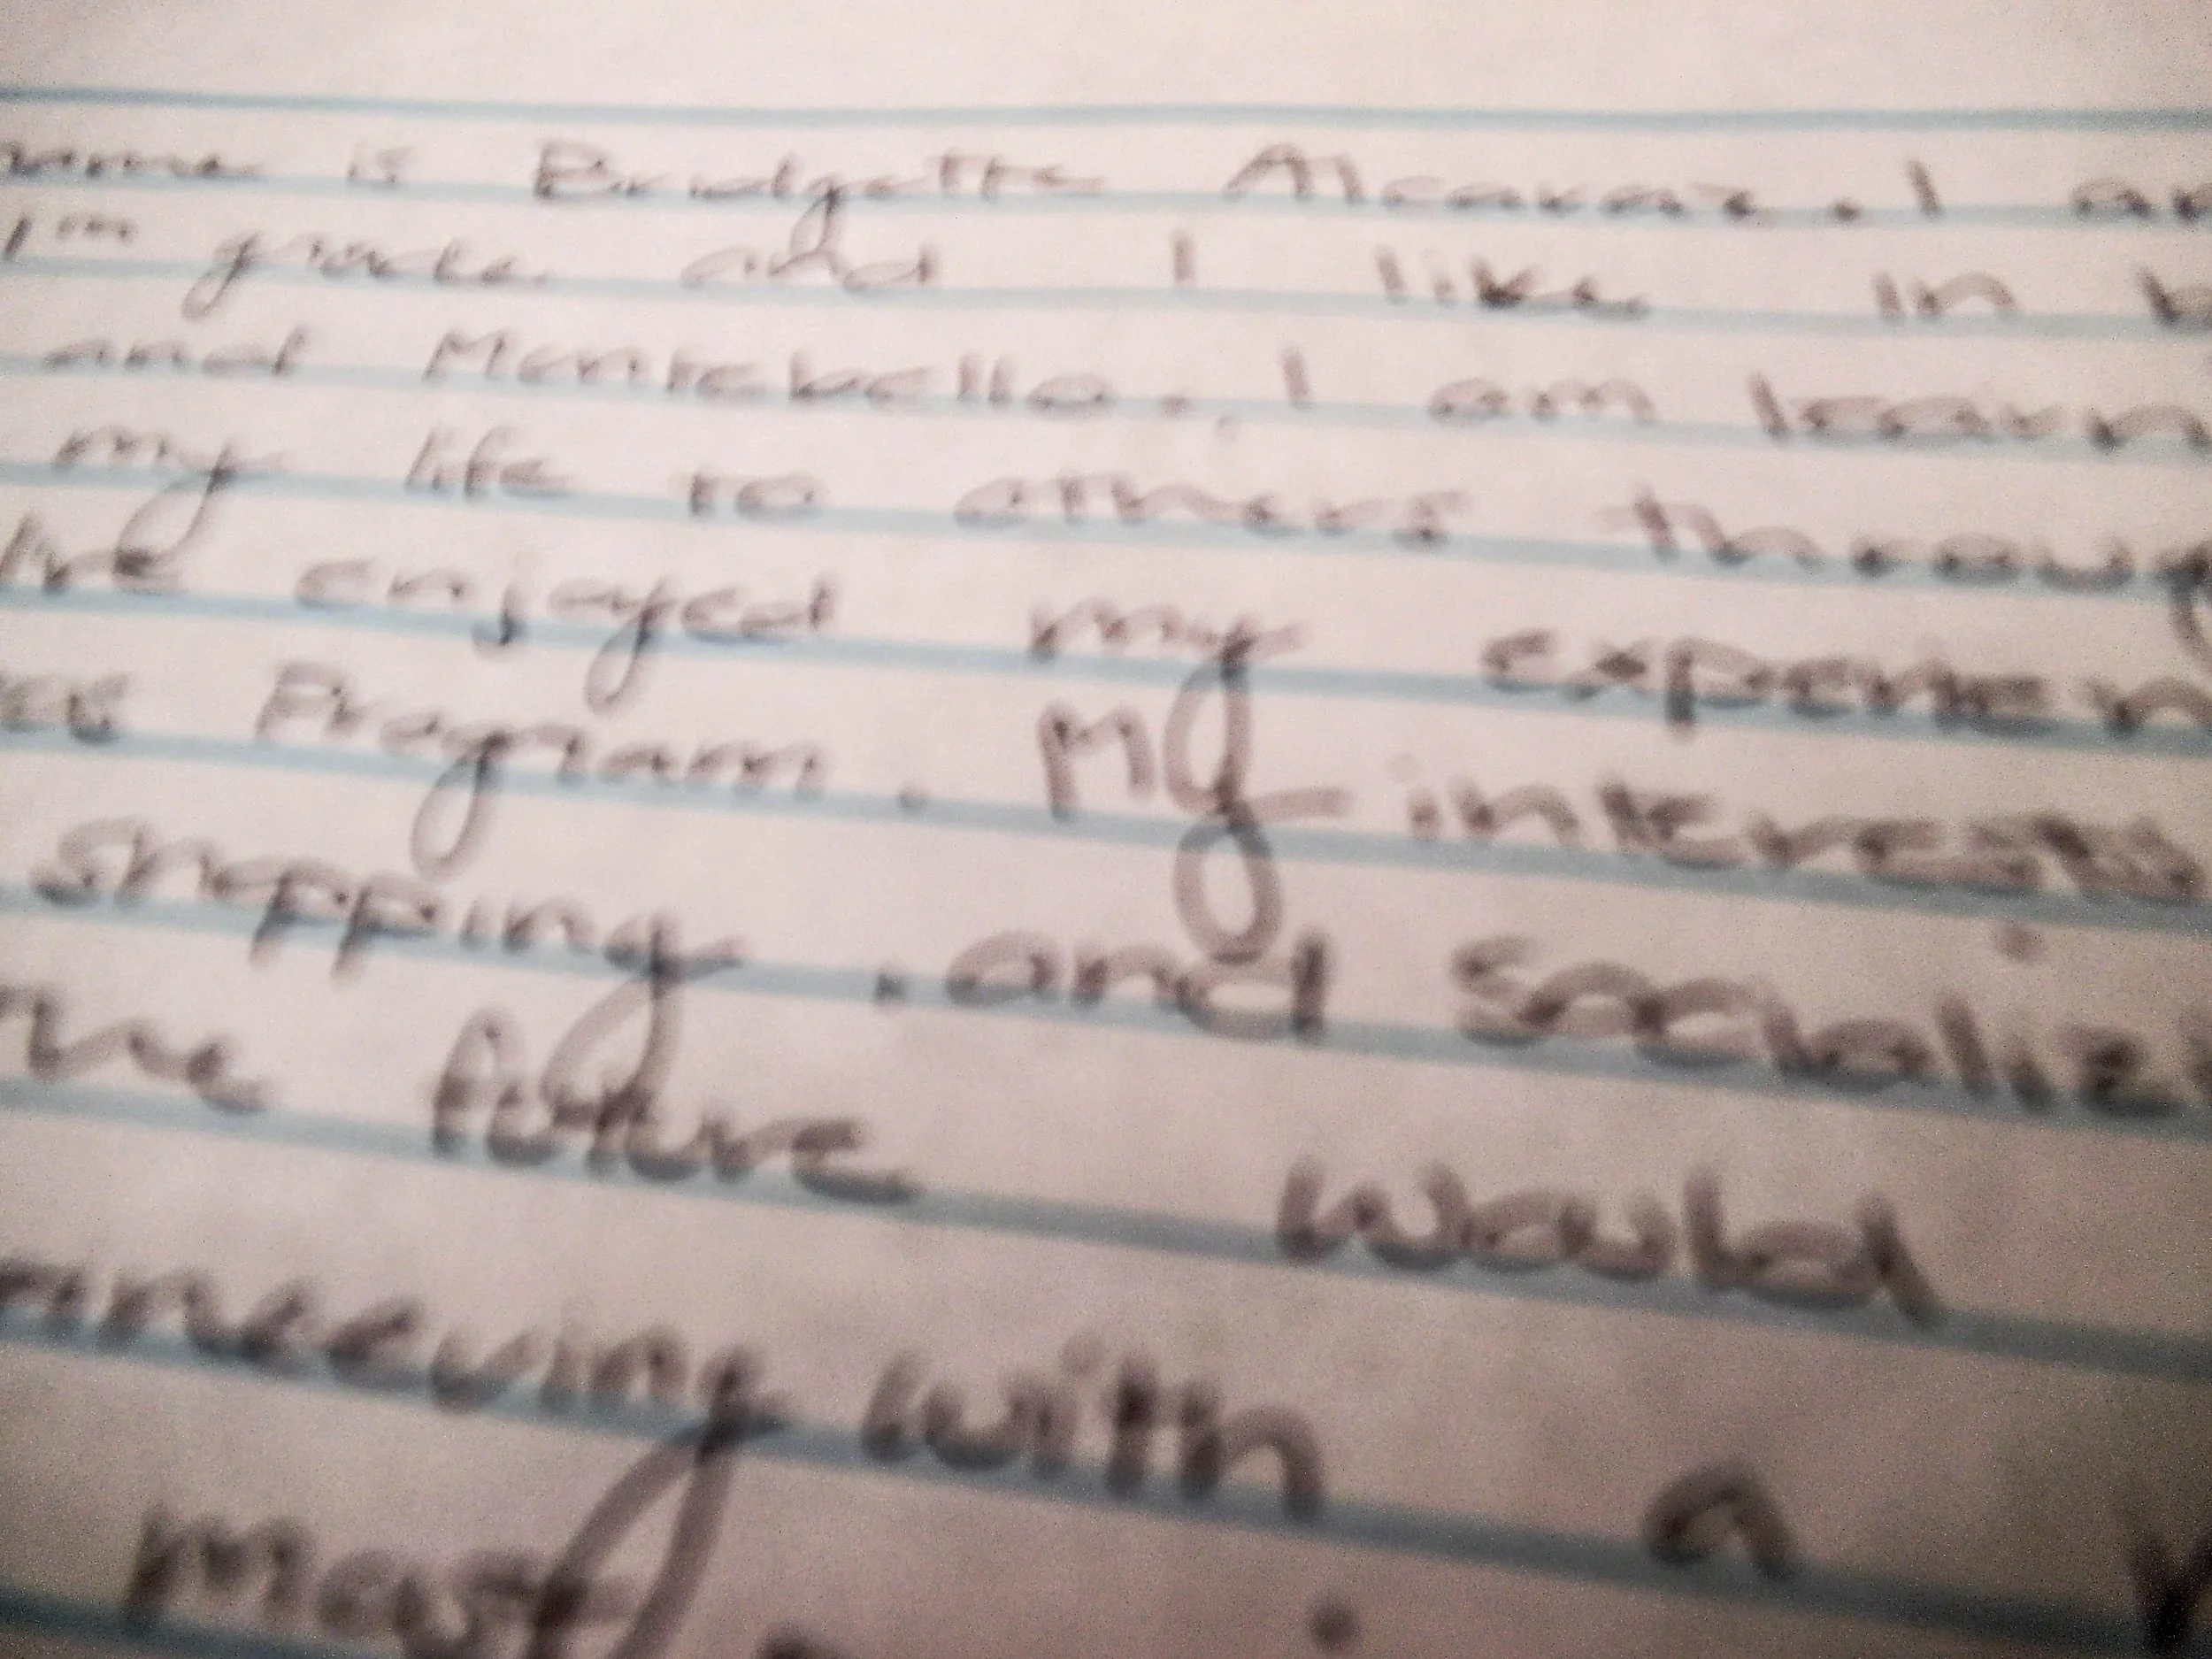 name is Bridgette Alcaraz. I am
grade and I like in
and Montebello. I am learn
my life to others throug
enjoyed my experien
Program. My interests
shopping, and socialize
the future would
aneering with a
most